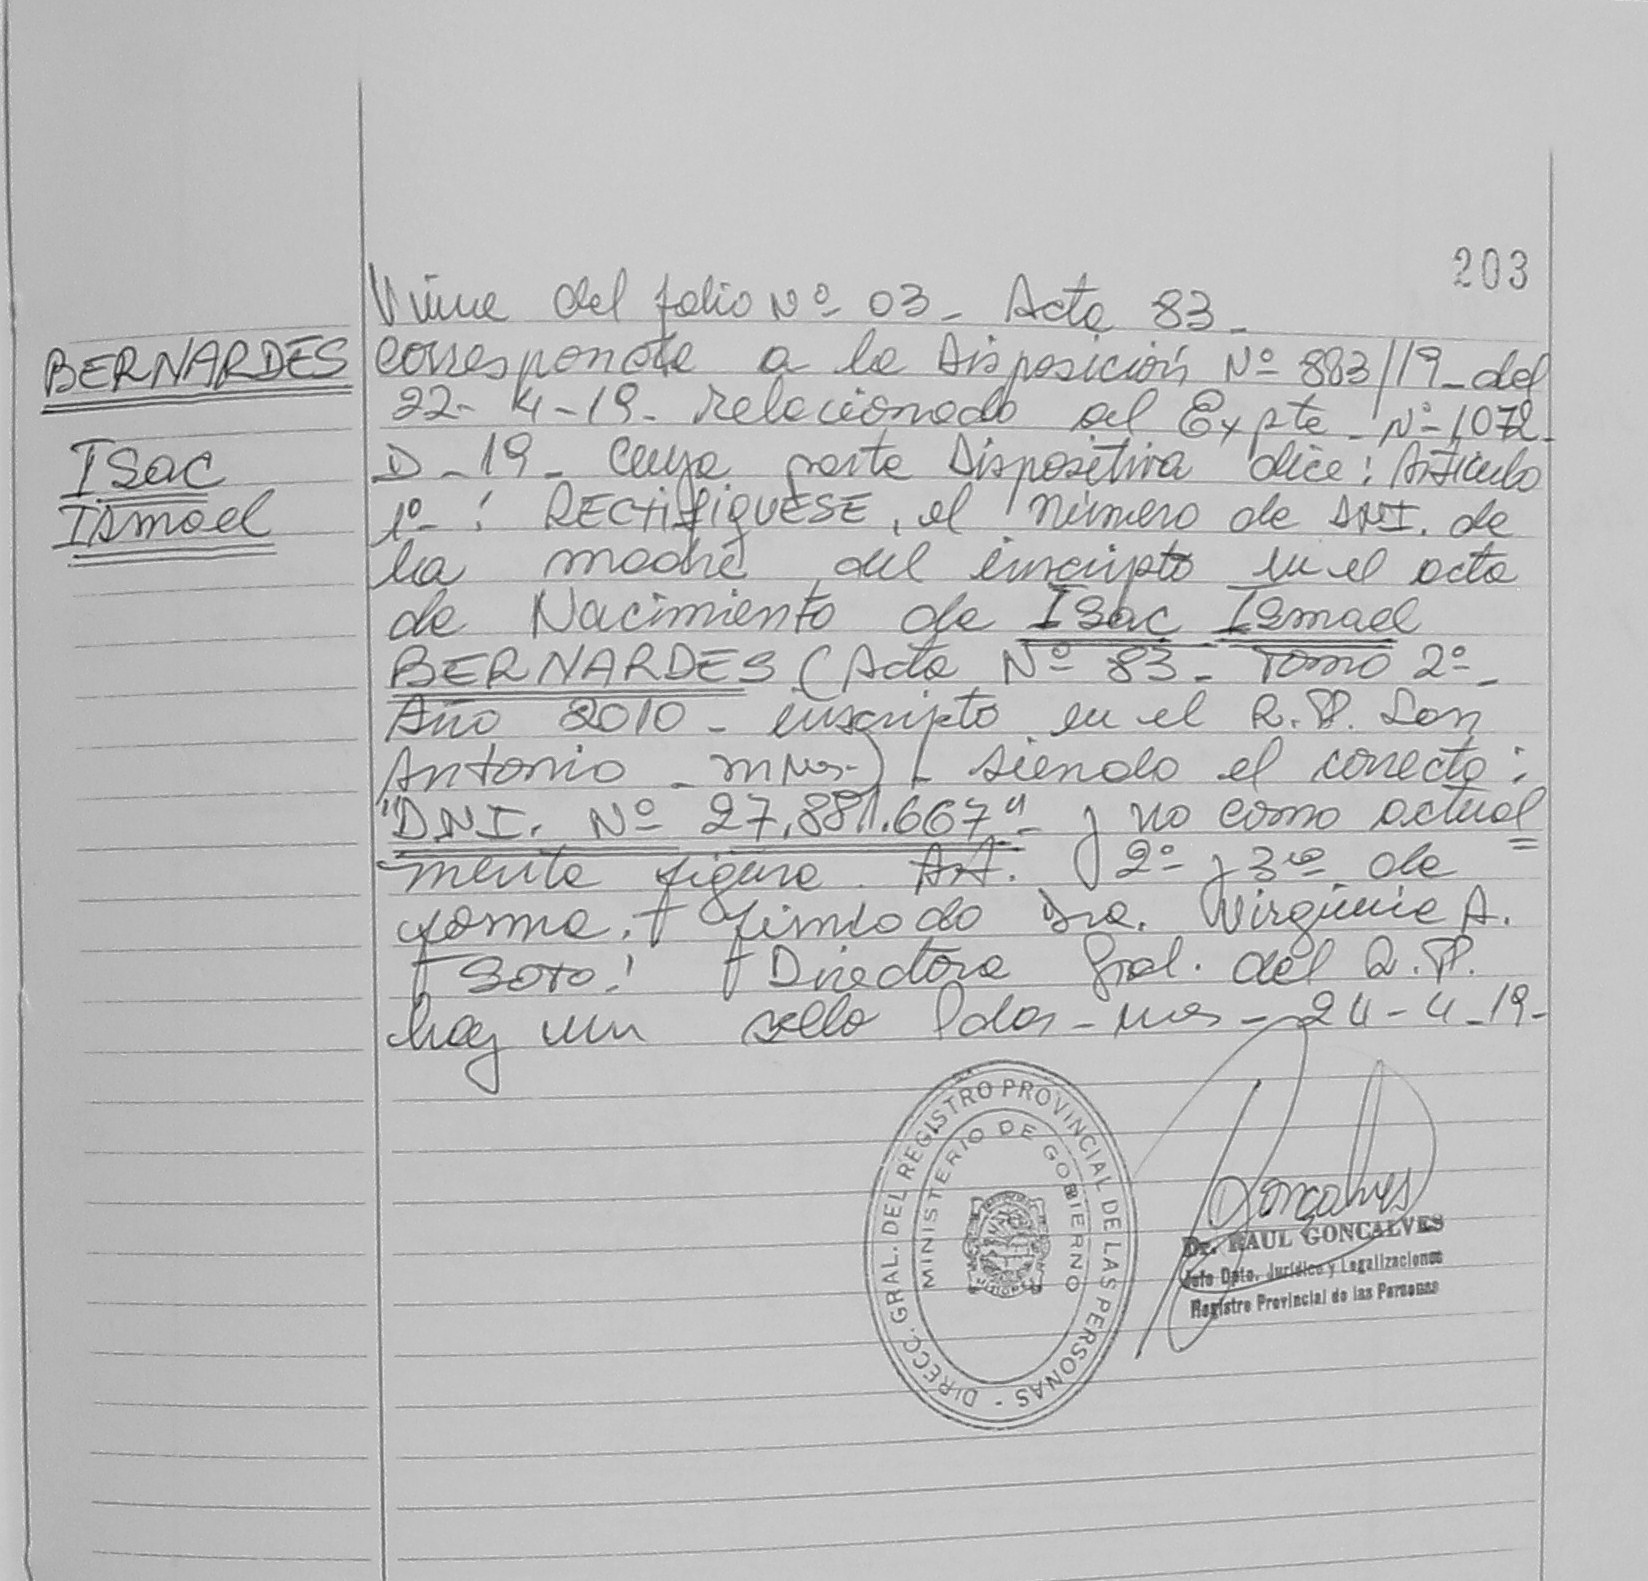 203
Viene del folio Nº 03 - Acta 83 -
BERNARDES
corresponde a la Disposición Nº 883/19 - del
22 - 4 - 19 - relacionado al Expte - Nº 1072 -
Isac
D - 19 - Cuya parte Dispositiva dice: Artículo
Ismael
1º - : RECTIFIQUESE, el número de DNI. de
la madre del inscripto en el acta
de Nacimiento de Isac Ismael
BERNARDES (Acta Nº 83 - Tomo 2º -
Año 2010 - inscripto en el R.P. San
Antonio - Mnes -) - siendo el correcto:
"DNI. Nº 27.881.667" - y no como actual
mente figura. Art. 2º y 3º de
forma. Firmado Dra. Virginia A.
Soto. Directora Gral. del R.P.
hay un sello Pdas - Mnes - 24 - 4 - 19 -
DIRECC. GRAL. DEL REGISTRO PROVINCIAL DE LAS PERSONAS -
MINISTERIO DE GOBIERNO
MISIONES
Goncalves
Dr. RAUL GONCALVES
Jefe Dpto. Jurídico y Legalizaciones
Registro Provincial de las Personas